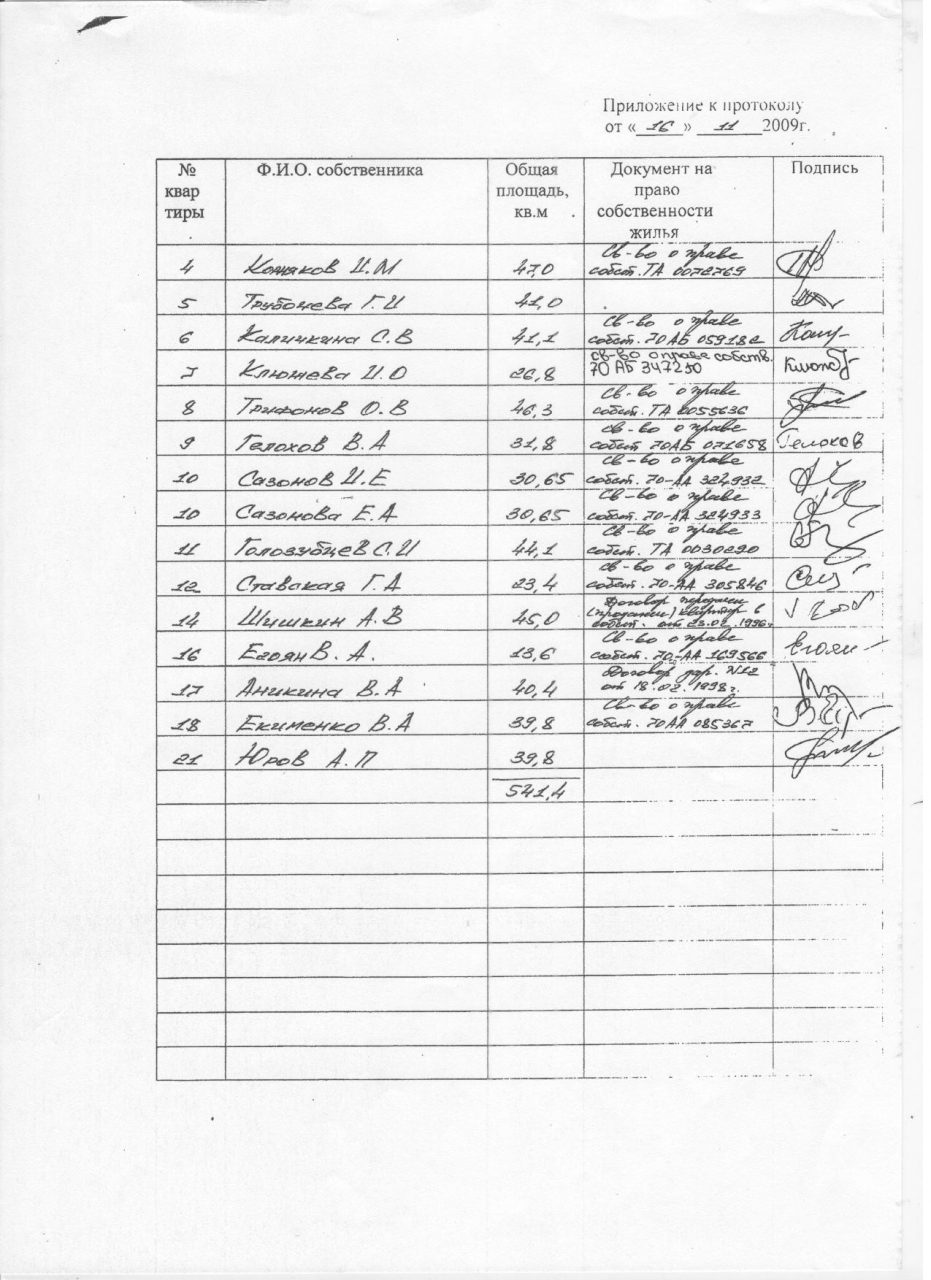 Приложение к протоколу
от «16» 11 2009г.
№ квар тиры Ф.И.О. собственника Общая площадь, кв.м Документ на право собственности жилья Подпись
4 И.М 47,0 Св-во о праве собст. ТА 0072769
5 Трубочева Г.И 41,0
6 Каличкина С.В 41,1 Св-во о праве собст. 70АБ 059182
7 Клюжева И.О 26,8 св-во о праве собств. 70 АБ 347250
8 Трифонов О.В 46,3 Св-во о праве собст. ТА 0055636
9 Гелохов В.А 31,8 Св-во о праве собст 70АБ 071658 Гелохов
10 Сазонов И.Е 30,65 Св-во о праве собст. 70-АА 324932
10 Сазонова Е.А 30,65 Св-во о праве собст. 70-АА 324933
11 Голозубцев С.И 44,1 Св-во о праве собст. ТА 0030290
12 Ставская Г.А 23,4 св-во о праве собст. 70-АА 305846
14 Шишкин А.В 45,0 Договор передачи (продажи) квартир в собст. от 23.02.1996г
16 Егоян В. А. 13,6 Св-во о праве собст. 70-АА 169566 Егоян
17 Аникина В.А 40,4 Договор дар. N12 от 18.02.1998г.
18 Екименко В.А 39,8 Св-во о праве собст. 70АА 085367
21 Юров А.П 39,8
541,4